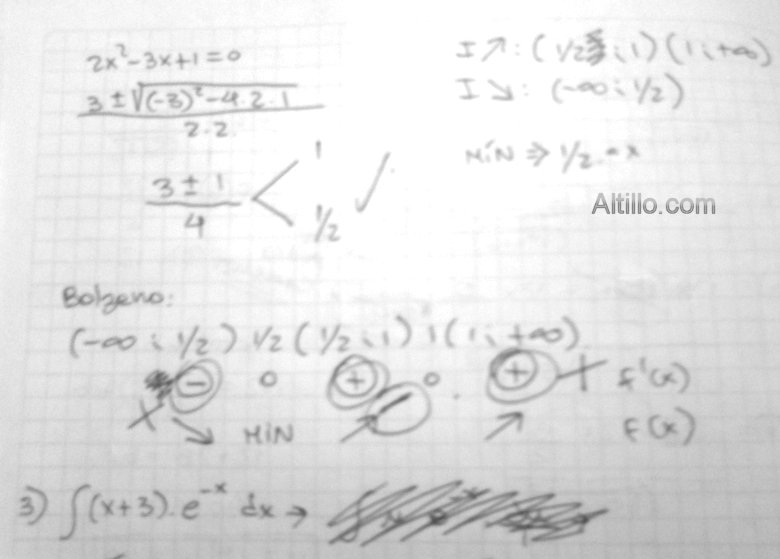 2x²-3x+1=0
3 ± √(-3)²-4.2.1
2.2
3 ± 1
4
1
1/2
I ↗: (1/2 ; 1) (1 ; +∞)
I ↘: (-∞ ; 1/2)
MÍN ⇒ 1/2 = x
Altillo.com
Bolzeno:
(-∞ ; 1/2) 1/2 (1/2 ; 1) 1 (1 ; +∞)
- 0 + 0 + f'(x)
↘ MÍN ↗ ↗ f(x)
3) ∫(x+3).e^-x dx →